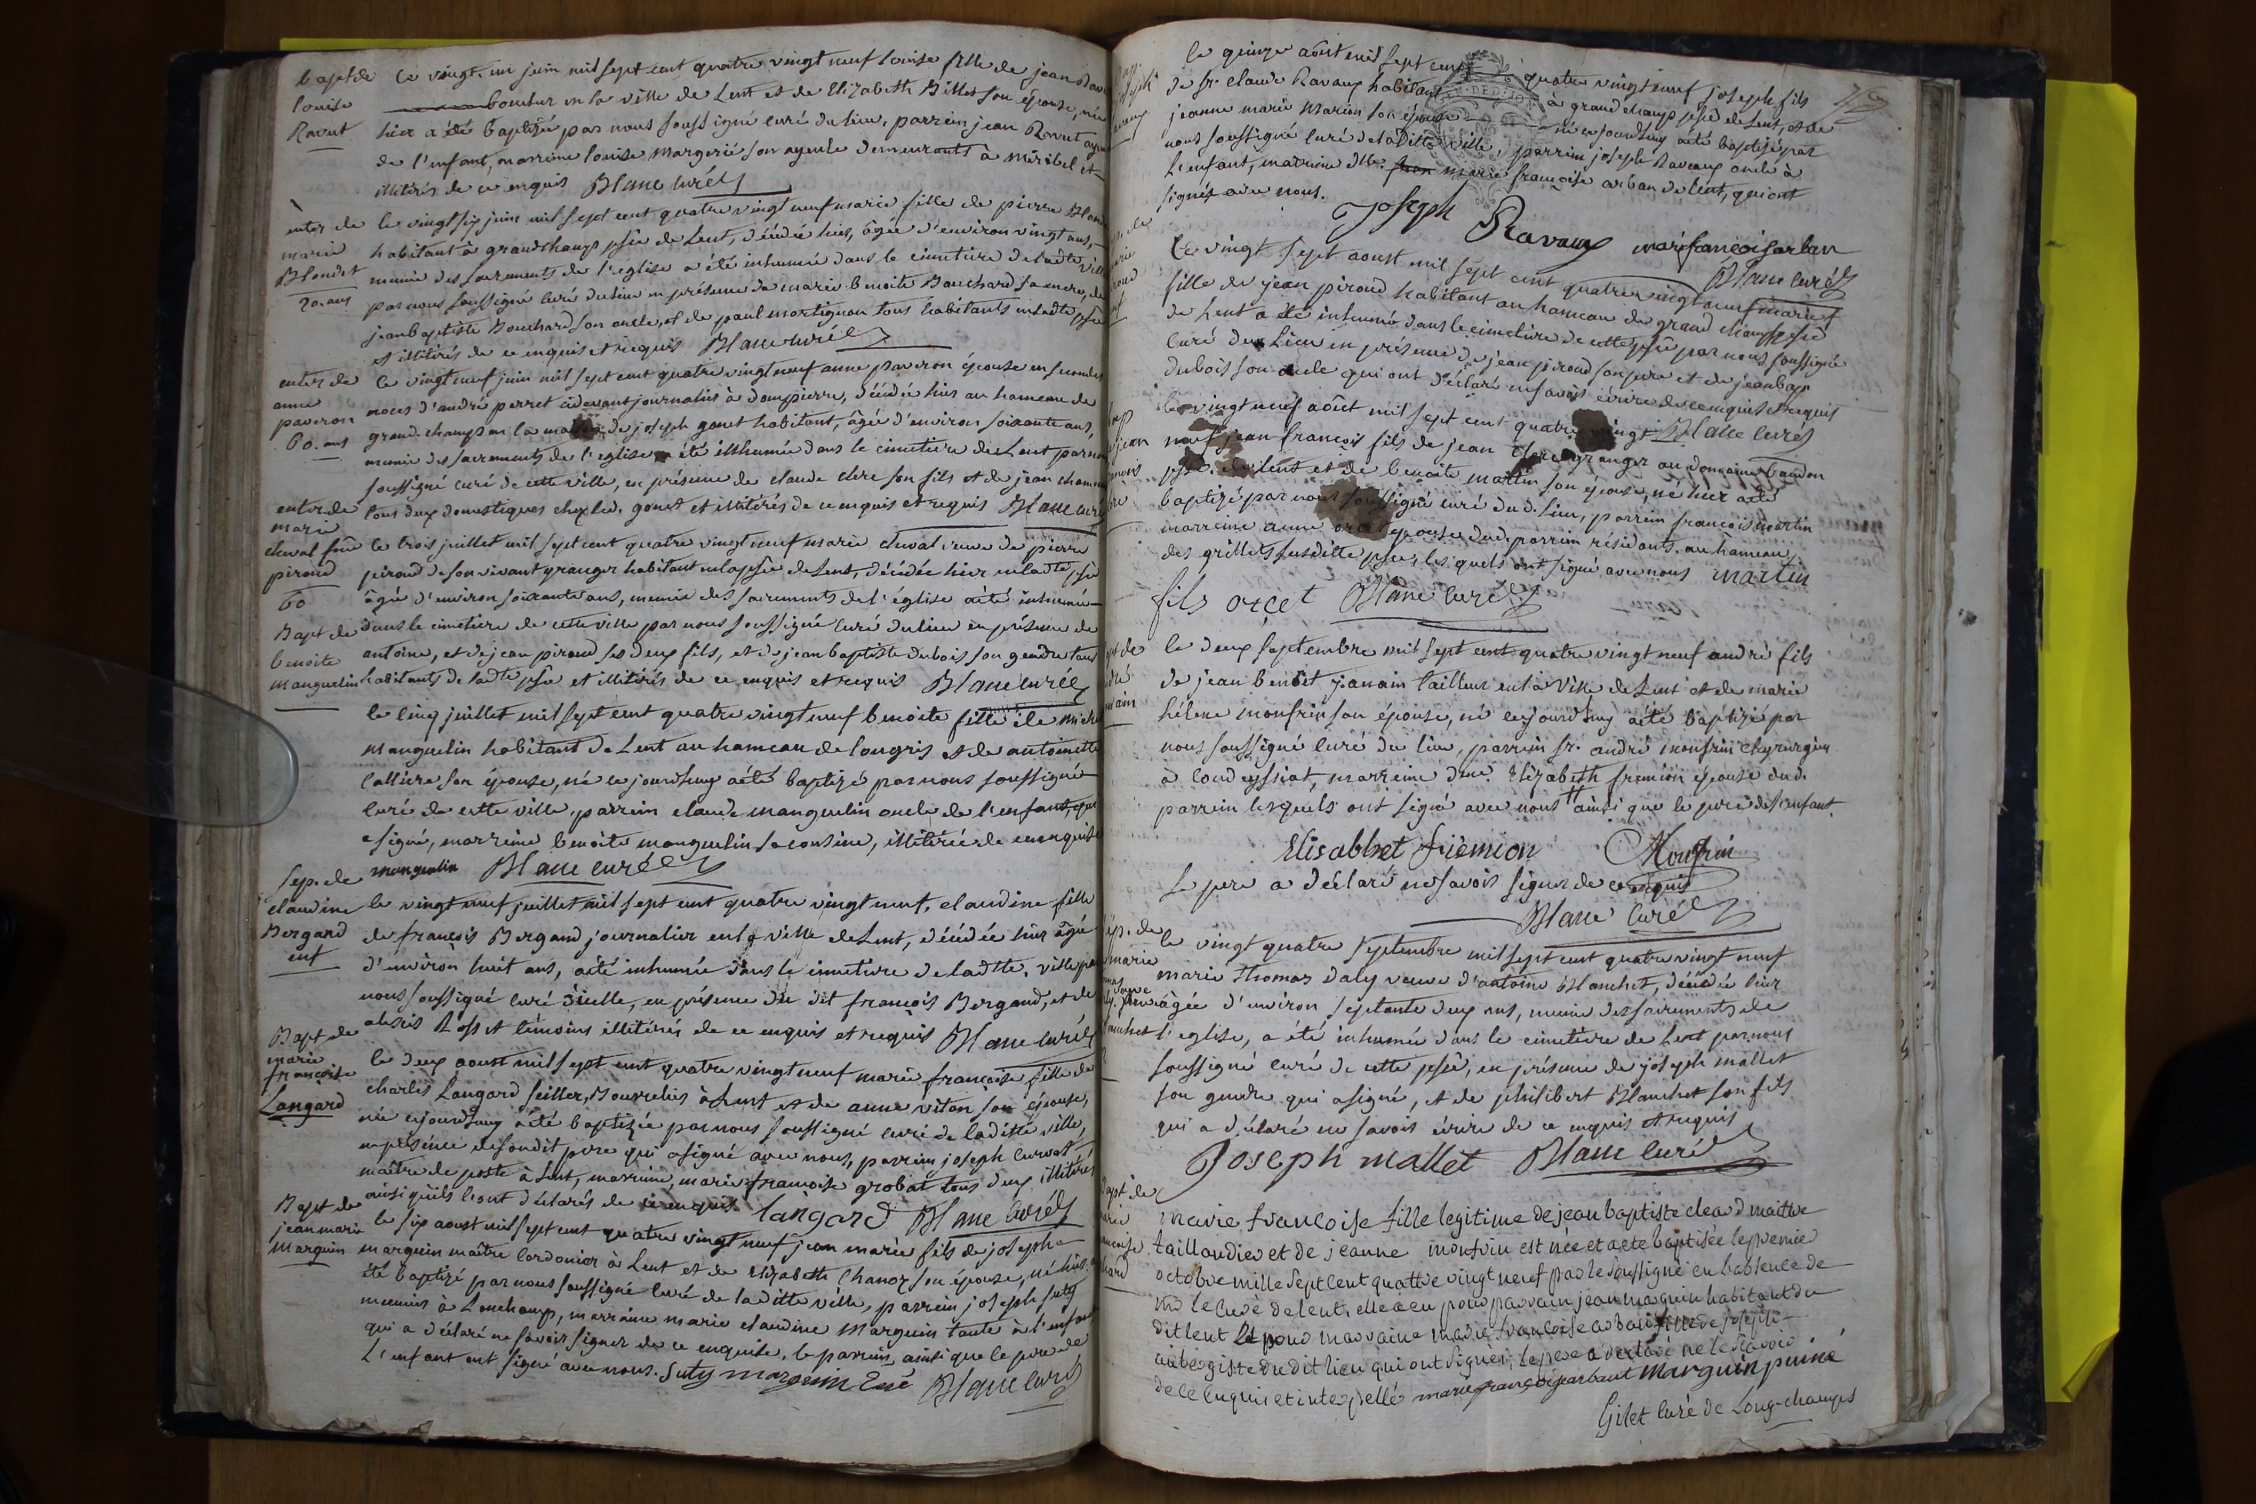 bapt de
louise
Ravut
Le vingt un juin mil sept cent quatre vingt neuf louise fille de jean
boucher en la ville de Lent et de Elizabeth Billet son épouse, née
hier a été baptizée par nous soussigné curé du lieu, parrein jean Ravut
de l'enfant, marreine louise Margerié son ayeule demeurants à Miribel et
illitérés de ce enquis Blanc curé
enter de
marie
Blondet
20. ans
le vingt six juin mil sept cent quatre vingt neuf marie fille de pierre
habitant à grandchamps psse de Lent, décédée hier, âgée d'environ vingt ans,
munie des sacrements de l'eglise a été inhumée dans le cimetiere de ladte ville
par nous soussigné curé du lieu en présence de marie benoite Bouchard sa mere, de
jean baptiste Bouchard son oncle, et de paul mortignon tous habitants en ladte psse
et illitérés de ce enquis et requis Blanc curé
enter de
anne
paveron
60. ans
le vingt neuf juin mil sept cent quatre vingt neuf anne paveron épouse en secondes
noces d'andré perret cidevant journalier à dompierre, décédée hier au hameau de
grand. champ en la de joseph gonet habitant, âgée d'environ soixante ans,
munie des sacrements de l'eglise a été inhumée dans le cimetiere de Lent par nous
soussigné curé de cette ville, en présence de claude clere son fils et de jean
tous deux domestiques chez led. gonet et illitérés de ce enquis et requis Blanc curé
enter de
marie
cheval fme
piroud
60
le trois juillet mil sept cent quatre vingt neuf marie cheval veuve de pierre
piroud de son vivant granger habitant en la psse de Lent, décédée hier en ladte psse
âgée d'environ soixante ans, munie des sacrements de l'église a été inhumée
dans le cimetiere de cette ville par nous soussigné curé du lieu en présence de
antoine, et de jean piroud ses deux fils, et de jean baptiste dubois son gendre tous
habitants de ladte psse et illitérés de ce enquis et requis Blanc curé
Bapt de
benoite
manguelin
le cinq juillet mil sept cent quatre vingt neuf benoite fille de
manguelin habitant de Lent au hameau de longris et de antoinette
son épouse, née ce jourdhuy a été baptizée par nous soussigné
curé de cette ville, parrein claude manguelin oncle de l'enfant, qui
a signé, marreine benoite manguelin sa cousine, illitérée de ce enquise
manguelin Blanc curé
Sep. de
claudine
Bergand
enf
le vingt neuf juillet mil sept cent quatre vingt neuf, claudine fille
de françois Bergand journalier en la ville de Lent, décédée hier âgée
d'environ huit ans, a été inhumée dans le cimetiere de ladte. ville par
nous soussigné curé d'icelle, en présence du dit françois Bergand, et de
témoins illitérés de ce enquis et requis Blanc curé
Bapt de
marie
françoise
Langard
le deux aoust mil sept cent quatre vingt neuf marie françoise fille de
charles Langard sellier, Bourrelier à Lent et de anne viton son épouse,
née cejourdhuy a été baptizée par nous soussigné curé de laditte ville,
en présence de sondit pere qui a signé avec nous, parrein joseph curvat
maître de poste à Lent, marreine, marie françoise grobat tous deux illitérés
ainsi qu'ils l'ont déclarés de ce enquis langard Blanc curé
Bapt de
jean marie
marguin
le six aoust mil sept cent quatre vingt neuf jean marie fils de joseph
marguin maître cordonier à Lent et de Elizabeth Chanoz son épouse, né hier a
été baptizé par nous soussigné curé de laditte ville, parrein joseph suty
meunier à Lonchamp, marreine marie claudine Marguin tante à l'enfant
qui a déclaré ne savoir signer de ce enquise, le parrein ainsi que le pere de
l'enfant ont signé avec nous. suty marguin Blanc curé
le quinze août mil sept cent quatre vingt neuf joseph fils
de sr. claude Ravaux habitant à grand champs psse de Lent, et de
jeanne marie Marion son épouse né cejourdhuy a été baptizé par
nous soussigné curé de laditte ville, parrein joseph Ravaux oncle à
l'enfant, marreine dlle. marie françoise arban de lent, qui ont
signés avec nous.
Joseph Ravaux mari françois arban
Blanc curé
Le vingt sept aoust mil sept cent quatre vingt neuf marie
fille de jean piroud habitant au hameau de grand champ psse
de Lent a été inhumé dans le cimetiere de cette psse par nous soussigné
curé du Lieu en présence de jean piroud son pere et de jean bap
dubois son oncle qui ont déclaré ne savoir écrire de ce enquis et requis
Blanc curé
le vingt neuf août mil sept cent quatre vingt
neuf jean françois fils de jean granger au domaine baudon
psse. de lent et de benoite martin son épouse, né hier a été
baptizé par nous soussigné curé du d. lieu, parrein françois martin
marreine anne orcet épouse dud. parrein résidants au hameau
des grillets susditte psse, lesquels ont signé avec nous martin
fils orcet Blanc curé
le deux septembre mil sept cent quatre vingt neuf andré fils
de jean benoit janain tailleur en la ville de Lent et de marie
hélene monfrin son épouse, né cejourdhuy a été baptizé par
nous soussigné curé du lieu, parrein sr. andré monfrin chyrurgien
à condeyssiat, marreine dme. Elizabeth fremion épouse dud.
parrein lesquels ont signé avec nous ainsi que le pere de l'enfant.
Elisabhet frèmion Monfrin
Le pere a déclaré ne savoir signer de ce enquis
Blanc curé
sép. de
marie
le vingt quatre septembre mil sept cent quatre vingt neuf
marie Thomas daly veuve d'antoine Blanchet, décédée hier
âgée d'environ septante deux ans, munie des sacrements de
l'eglise, a été inhumée dans le cimetiere de Lent par nous
soussigné curé de cette psse, en présence de joseph mallet
son gendre qui a signé, et de philibert Blanchet son fils
qui a déclaré ne savoir écrire de ce enquis et requis
Joseph mallet Blanc curé
bapt de
marie francoise fille legitime de jean baptiste cleard maitre
taillandier et de jeanne monfrin est née et a ete baptisée le premie
octobre mille sept cent quattre vingt neuf par le soussigné en l'absence de
mr le curé de lent, elle a eu pour parrain jean marguin habitant du
dit lent et pour marraine marie francoise arban fille de joseph
aubergiste du dit lieu qui ont signés, le pere a declaré ne le scavoir
de ce enquis et interpellé marie françois arbant Marguin puiné
Gilet curé de Long-champs